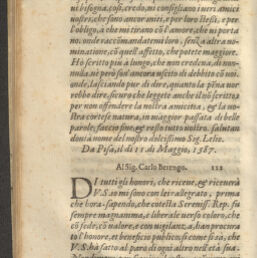 ui bisogna, così, credo, mi consigliano i ueri amici
uostri, che sono ancor miei, e per loro stessi, e per
l'obligo, a che mi tirano cõ l'amore, che ui porta
no. onde raccõmandatemi loro, senza altra no-
minatione, cõ quell'affetto, che potete maggior.
Ho scritto più a lungo, che non credeua, di non
nulla. nè però suol ancora uscito di debitto cõ uoi.
onde, lasciando pur di dire, quanto la pẽna uor
rebbe dire, sicuro che leggete anche il nõ scritto,
per non offendere la nostra amicitia, & la uo
stra cortese natura, in maggior passata di belle
parole; faccio fine, & resto tutto uostro. salutan
do uia à nome del nostro dolcissimo Sig. Lelio.
Da Pisa, il dì 11 di Maggio, 1587.
Al Sig. Carlo Berengo. III
DI tutti gli honori, che riceue, & riceuerà
V. S. io mi sono con lei allegrato, prima
che hora. sapendo, che cotesta Sereniss. Rep. fu
sempre magnanima, e liberale uerso coloro, che
cõ fede, cõ ualore, e con uigilanza, han procura
to l'honore, et beneficio publico. si come si sà, che
V. S. hà fatto al paro di ogni altro nell'età sua.